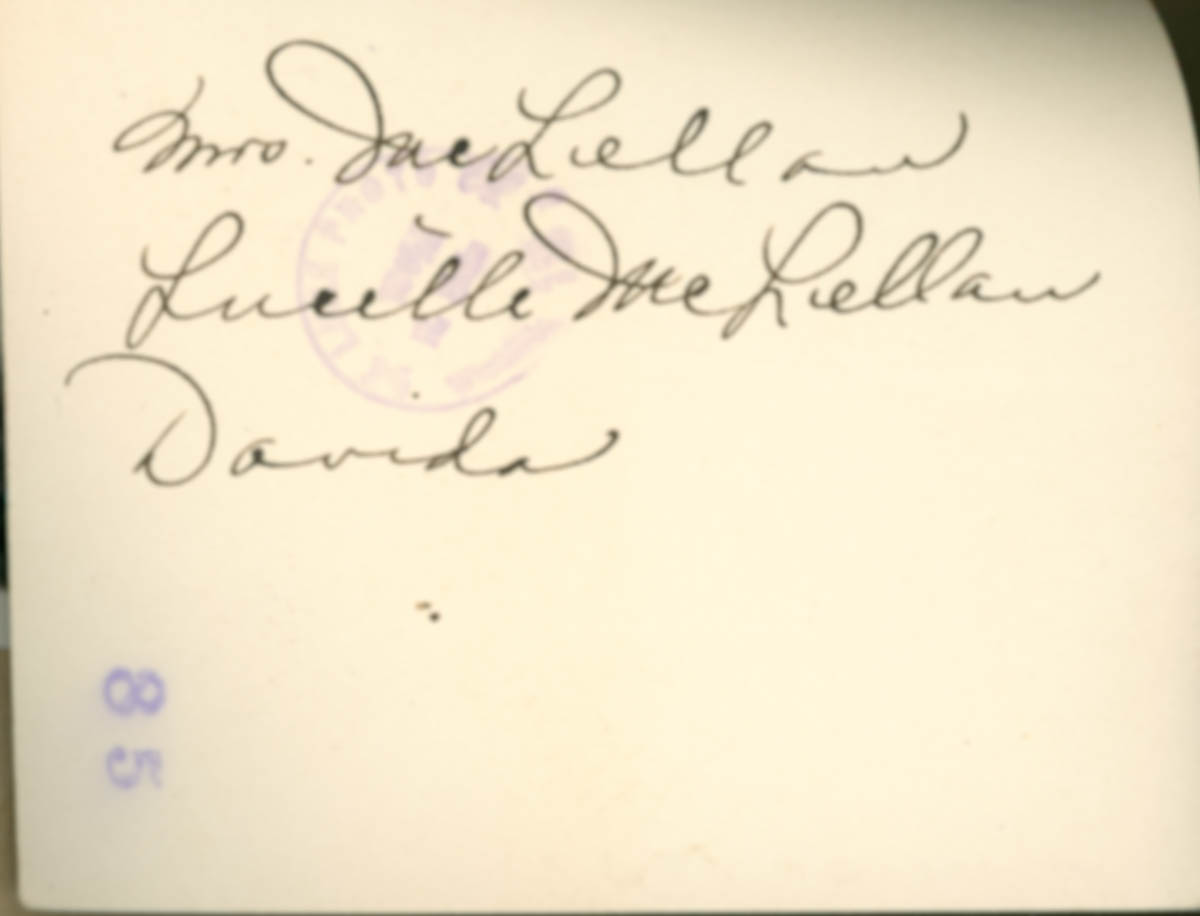 Mrs. McLellan
Lucille McLellan
Davida
85